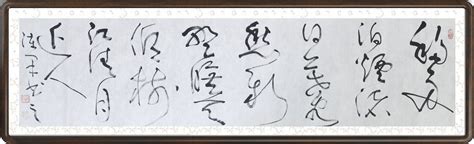 移舟
泊煙渚
日暮客
愁新
野曠天
低樹
江清月
近人